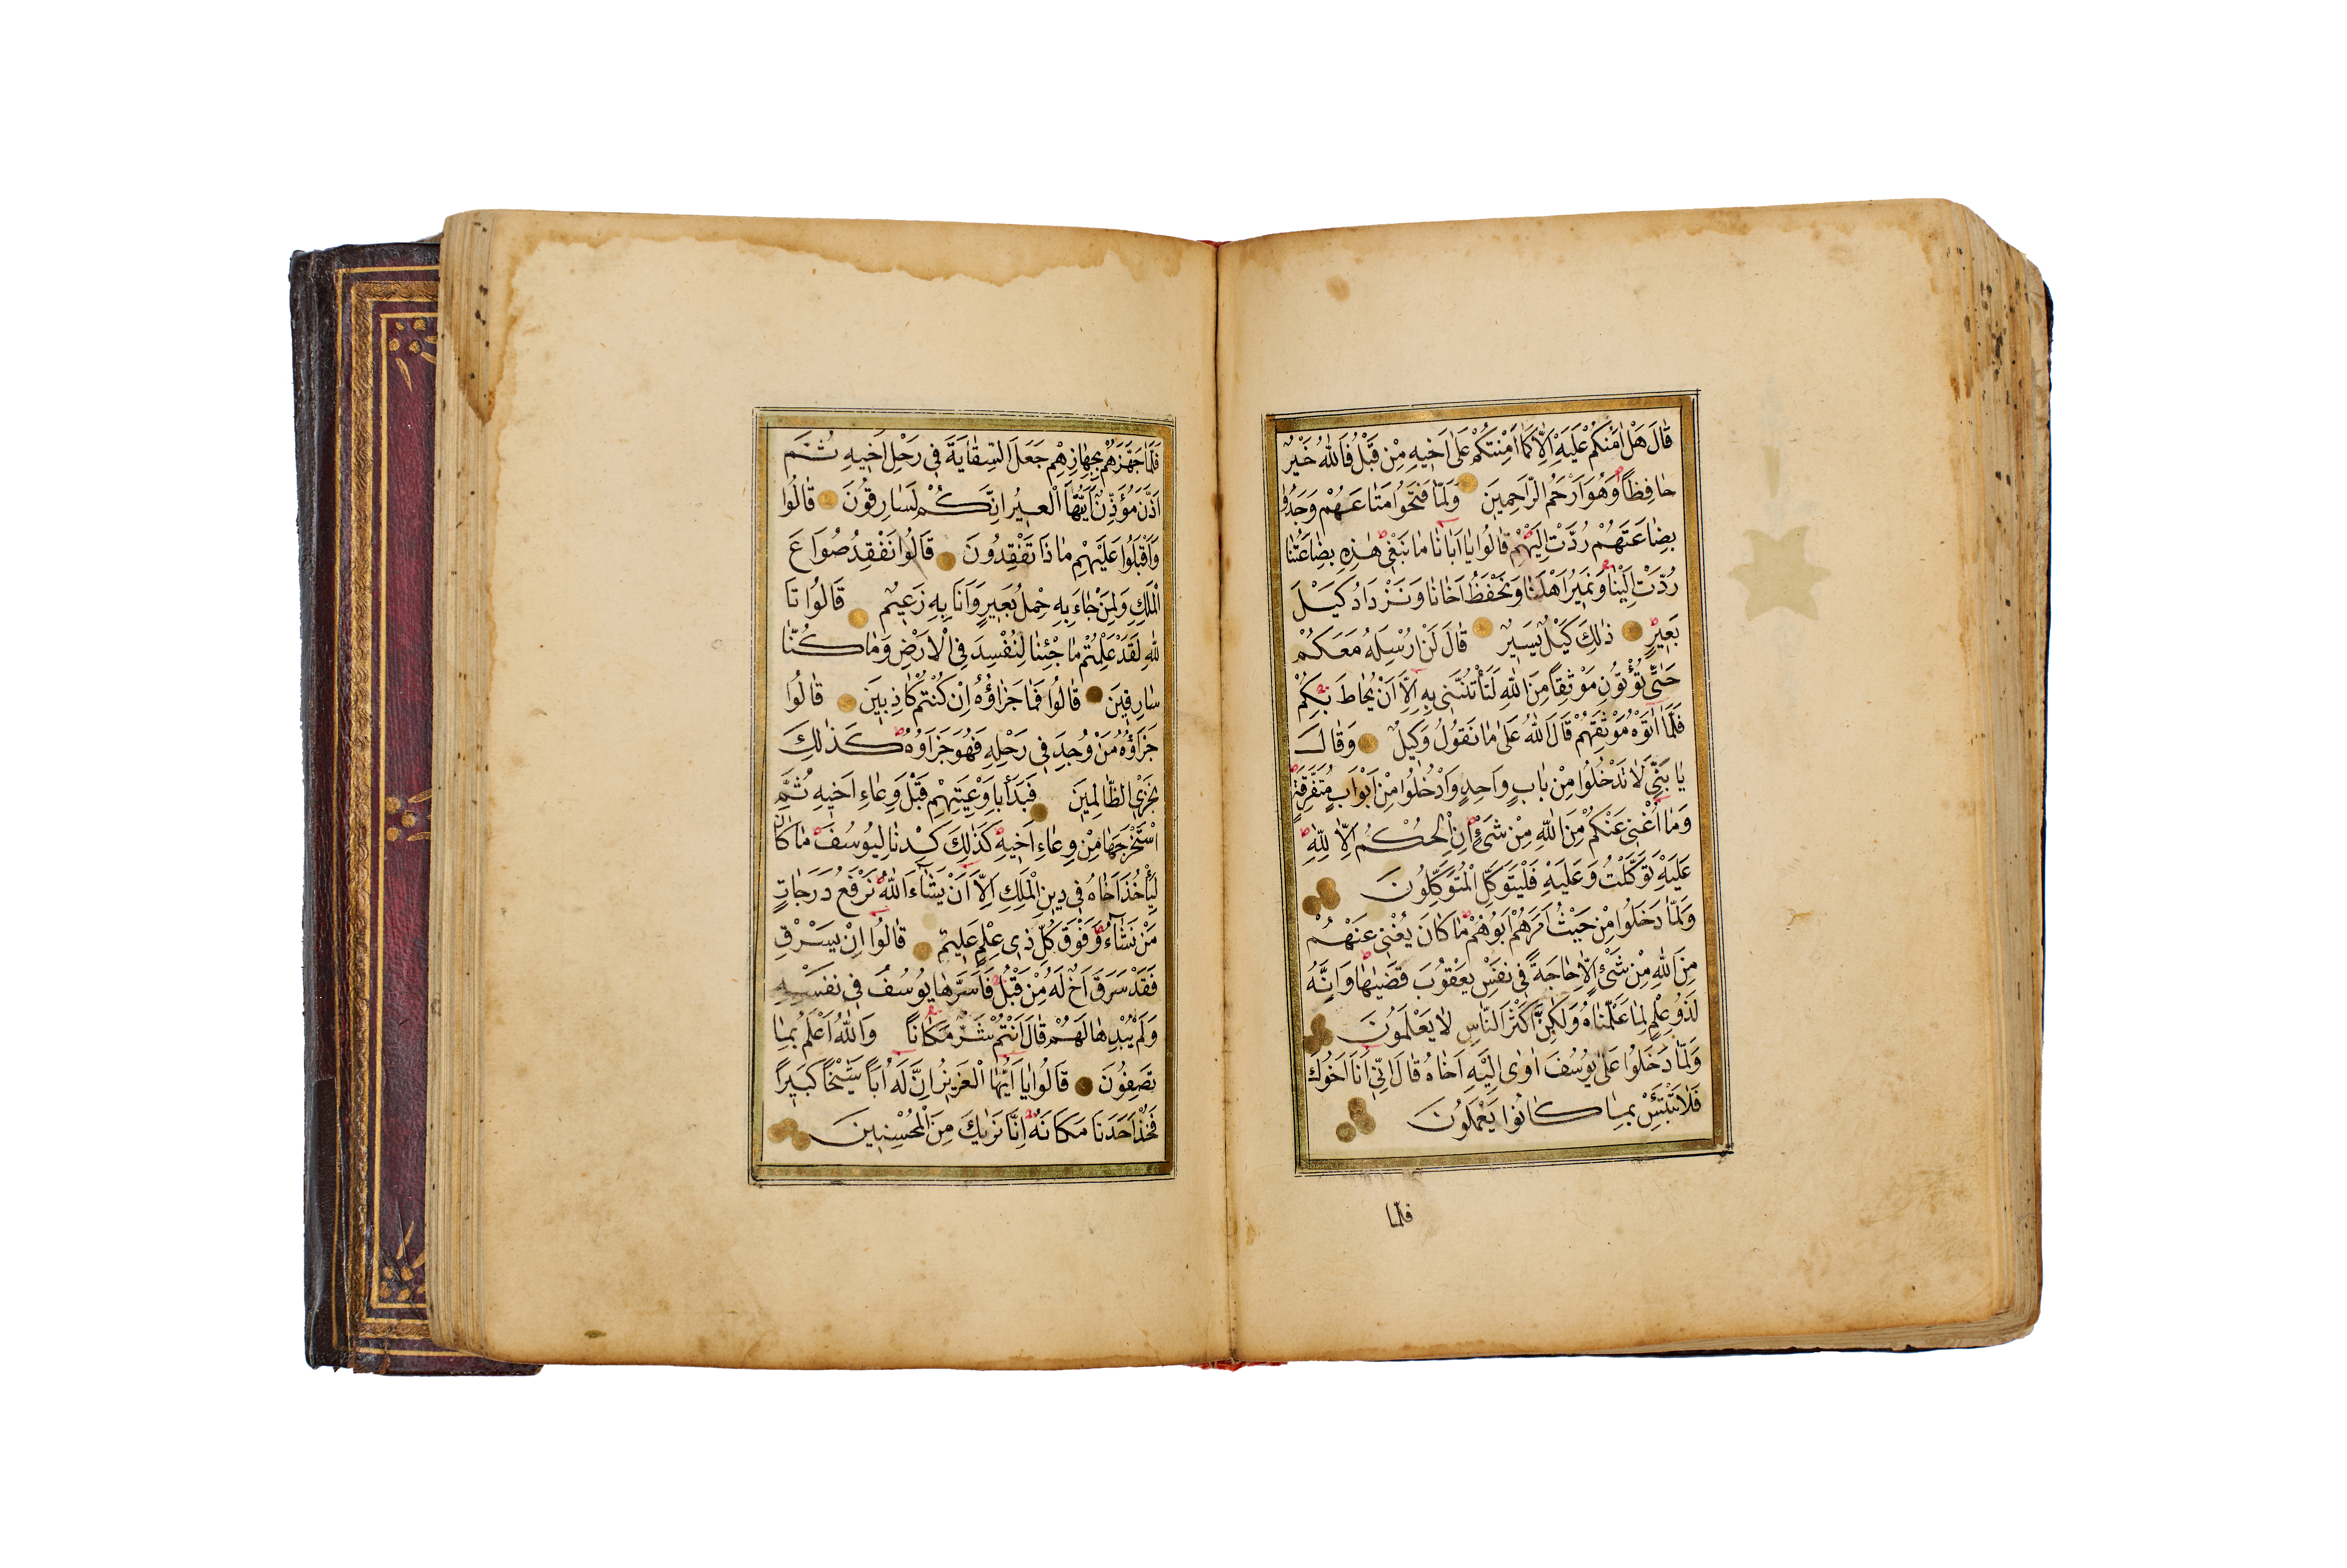 قَالَ هَلْ اٰمَنُكُمْ عَلَيْهِ اِلَّا كَمَا اَمِنْتُكُمْ عَلٰى اَخ۪يهِ مِنْ قَبْلُ فَاللّٰهُ خَيْرٌ
حَافِظًا وَهُوَ اَرْحَمُ الرَّاحِمِينَ وَلَمَّا فَتَحُوا مَتَاعَهُمْ وَجَدُوا
بِضَاعَتَهُمْ رُدَّتْ اِلَيْهِمْ قَالُوا يَا اَبَانَا مَا نَبْغِى هٰذِهِ بِضَاعَتُنَا
رُدَّتْ اِلَيْنَا وَنَمِيرُ اَهْلَنَا وَنَحْفَظُ اَخَانَا وَنَزْدَادُ كَيْلَ
بَعِيرٍ ذٰلِكَ كَيْلٌ يَسِيرٌ قَالَ لَنْ اُرْسِلَهُ مَعَكُمْ
حَتّٰى تُؤْتُونِ مَوْثِقًا مِنَ اللّٰهِ لَتَأْتُنَّنِى بِهِ اِلَّا اَنْ يُحَاطَ بِكُمْ
فَلَمَّا اٰتَوْهُ مَوْثِقَهُمْ قَالَ اللّٰهُ عَلٰى مَا نَقُولُ وَكِيلٌ وَقَالَ
يَا بَنِىَّ لَا تَدْخُلُوا مِنْ بَابٍ وَاحِدٍ وَادْخُلُوا مِنْ اَبْوَابٍ مُتَفَرِّقَةٍ
وَمَا اُغْنِى عَنْكُمْ مِنَ اللّٰهِ مِنْ شَىْءٍ اِنِ الْحُكْمُ اِلَّا لِلّٰهِ
عَلَيْهِ تَوَكَّلْتُ وَعَلَيْهِ فَلْيَتَوَكَّلِ الْمُتَوَكِّلُونَ
وَلَمَّا دَخَلُوا مِنْ حَيْثُ اَمَرَهُمْ اَبُوهُمْ مَا كَانَ يُغْنِى عَنْهُمْ
مِنَ اللّٰهِ مِنْ شَىْءٍ اِلَّا حَاجَةً فِى نَفْسِ يَعْقُوبَ قَضٰيهَا وَاِنَّهُ
لَذُو عِلْمٍ لِمَا عَلَّمْنَاهُ وَلٰكِنَّ اَكْثَرَ النَّاسِ لَا يَعْلَمُونَ
وَلَمَّا دَخَلُوا عَلٰى يُوسُفَ اٰوٰى اِلَيْهِ اَخَاهُ قَالَ اِنِّى اَنَا اَخُوكَ
فَلَا تَبْتَئِسْ بِمَا كَانُوا يَعْمَلُونَ
فلما
فَلَمَّا جَهَّزَهُمْ بِجَهَازِهِمْ جَعَلَ السِّقَايَةَ فِى رَحْلِ اَخِيهِ ثُمَّ
اَذَّنَ مُؤَذِّنٌ اَيَّتُهَا الْعِيرُ اِنَّكُمْ لَسَارِقُونَ قَالُوا
وَاَقْبَلُوا عَلَيْهِمْ مَاذَا تَفْقِدُونَ قَالُوا نَفْقِدُ صُوَاعَ
الْمَلِكِ وَلِمَنْ جَاءَ بِهِ حِمْلُ بَعِيرٍ وَاَنَا بِهِ زَعِيمٌ قَالُوا تَا
للّٰهِ لَقَدْ عَلِمْتُمْ مَا جِئْنَا لِنُفْسِدَ فِى الْاَرْضِ وَمَا كُنَّا
سَارِقِينَ قَالُوا فَمَا جَزَاؤُهُ اِنْ كُنْتُمْ كَاذِبِينَ قَالُوا
جَزَاؤُهُ مَنْ وُجِدَ فِى رَحْلِهِ فَهُوَ جَزَاؤُهُ كَذٰلِكَ
نَجْزِى الظَّالِمِينَ فَبَدَأَ بِاَوْعِيَتِهِمْ قَبْلَ وِعَاءِ اَخِيهِ ثُمَّ
اسْتَخْرَجَهَا مِنْ وِعَاءِ اَخِيهِ كَذٰلِكَ كِدْنَا لِيُوسُفَ مَا كَانَ
لِيَأْخُذَ اَخَاهُ فِى دِينِ الْمَلِكِ اِلَّا اَنْ يَشَاءَ اللّٰهُ نَرْفَعُ دَرَجَاتٍ
مَنْ نَشَاءُ وَفَوْقَ كُلِّ ذِى عِلْمٍ عَلِيمٌ قَالُوا اِنْ يَسْرِقْ
فَقَدْ سَرَقَ اَخٌ لَهُ مِنْ قَبْلُ فَاَسَرَّهَا يُوسُفُ فِى نَفْسِهِ
وَلَمْ يُبْدِهَا لَهُمْ قَالَ اَنْتُمْ شَرٌّ مَكَانًا وَاللّٰهُ اَعْلَمُ بِمَا
تَصِفُونَ قَالُوا يَا اَيُّهَا الْعَزِيزُ اِنَّ لَهُ اَبًا شَيْخًا كَبِيرًا
فَخُذْ اَحَدَنَا مَكَانَهُ اِنَّا نَرٰيكَ مِنَ الْمُحْسِنِينَ